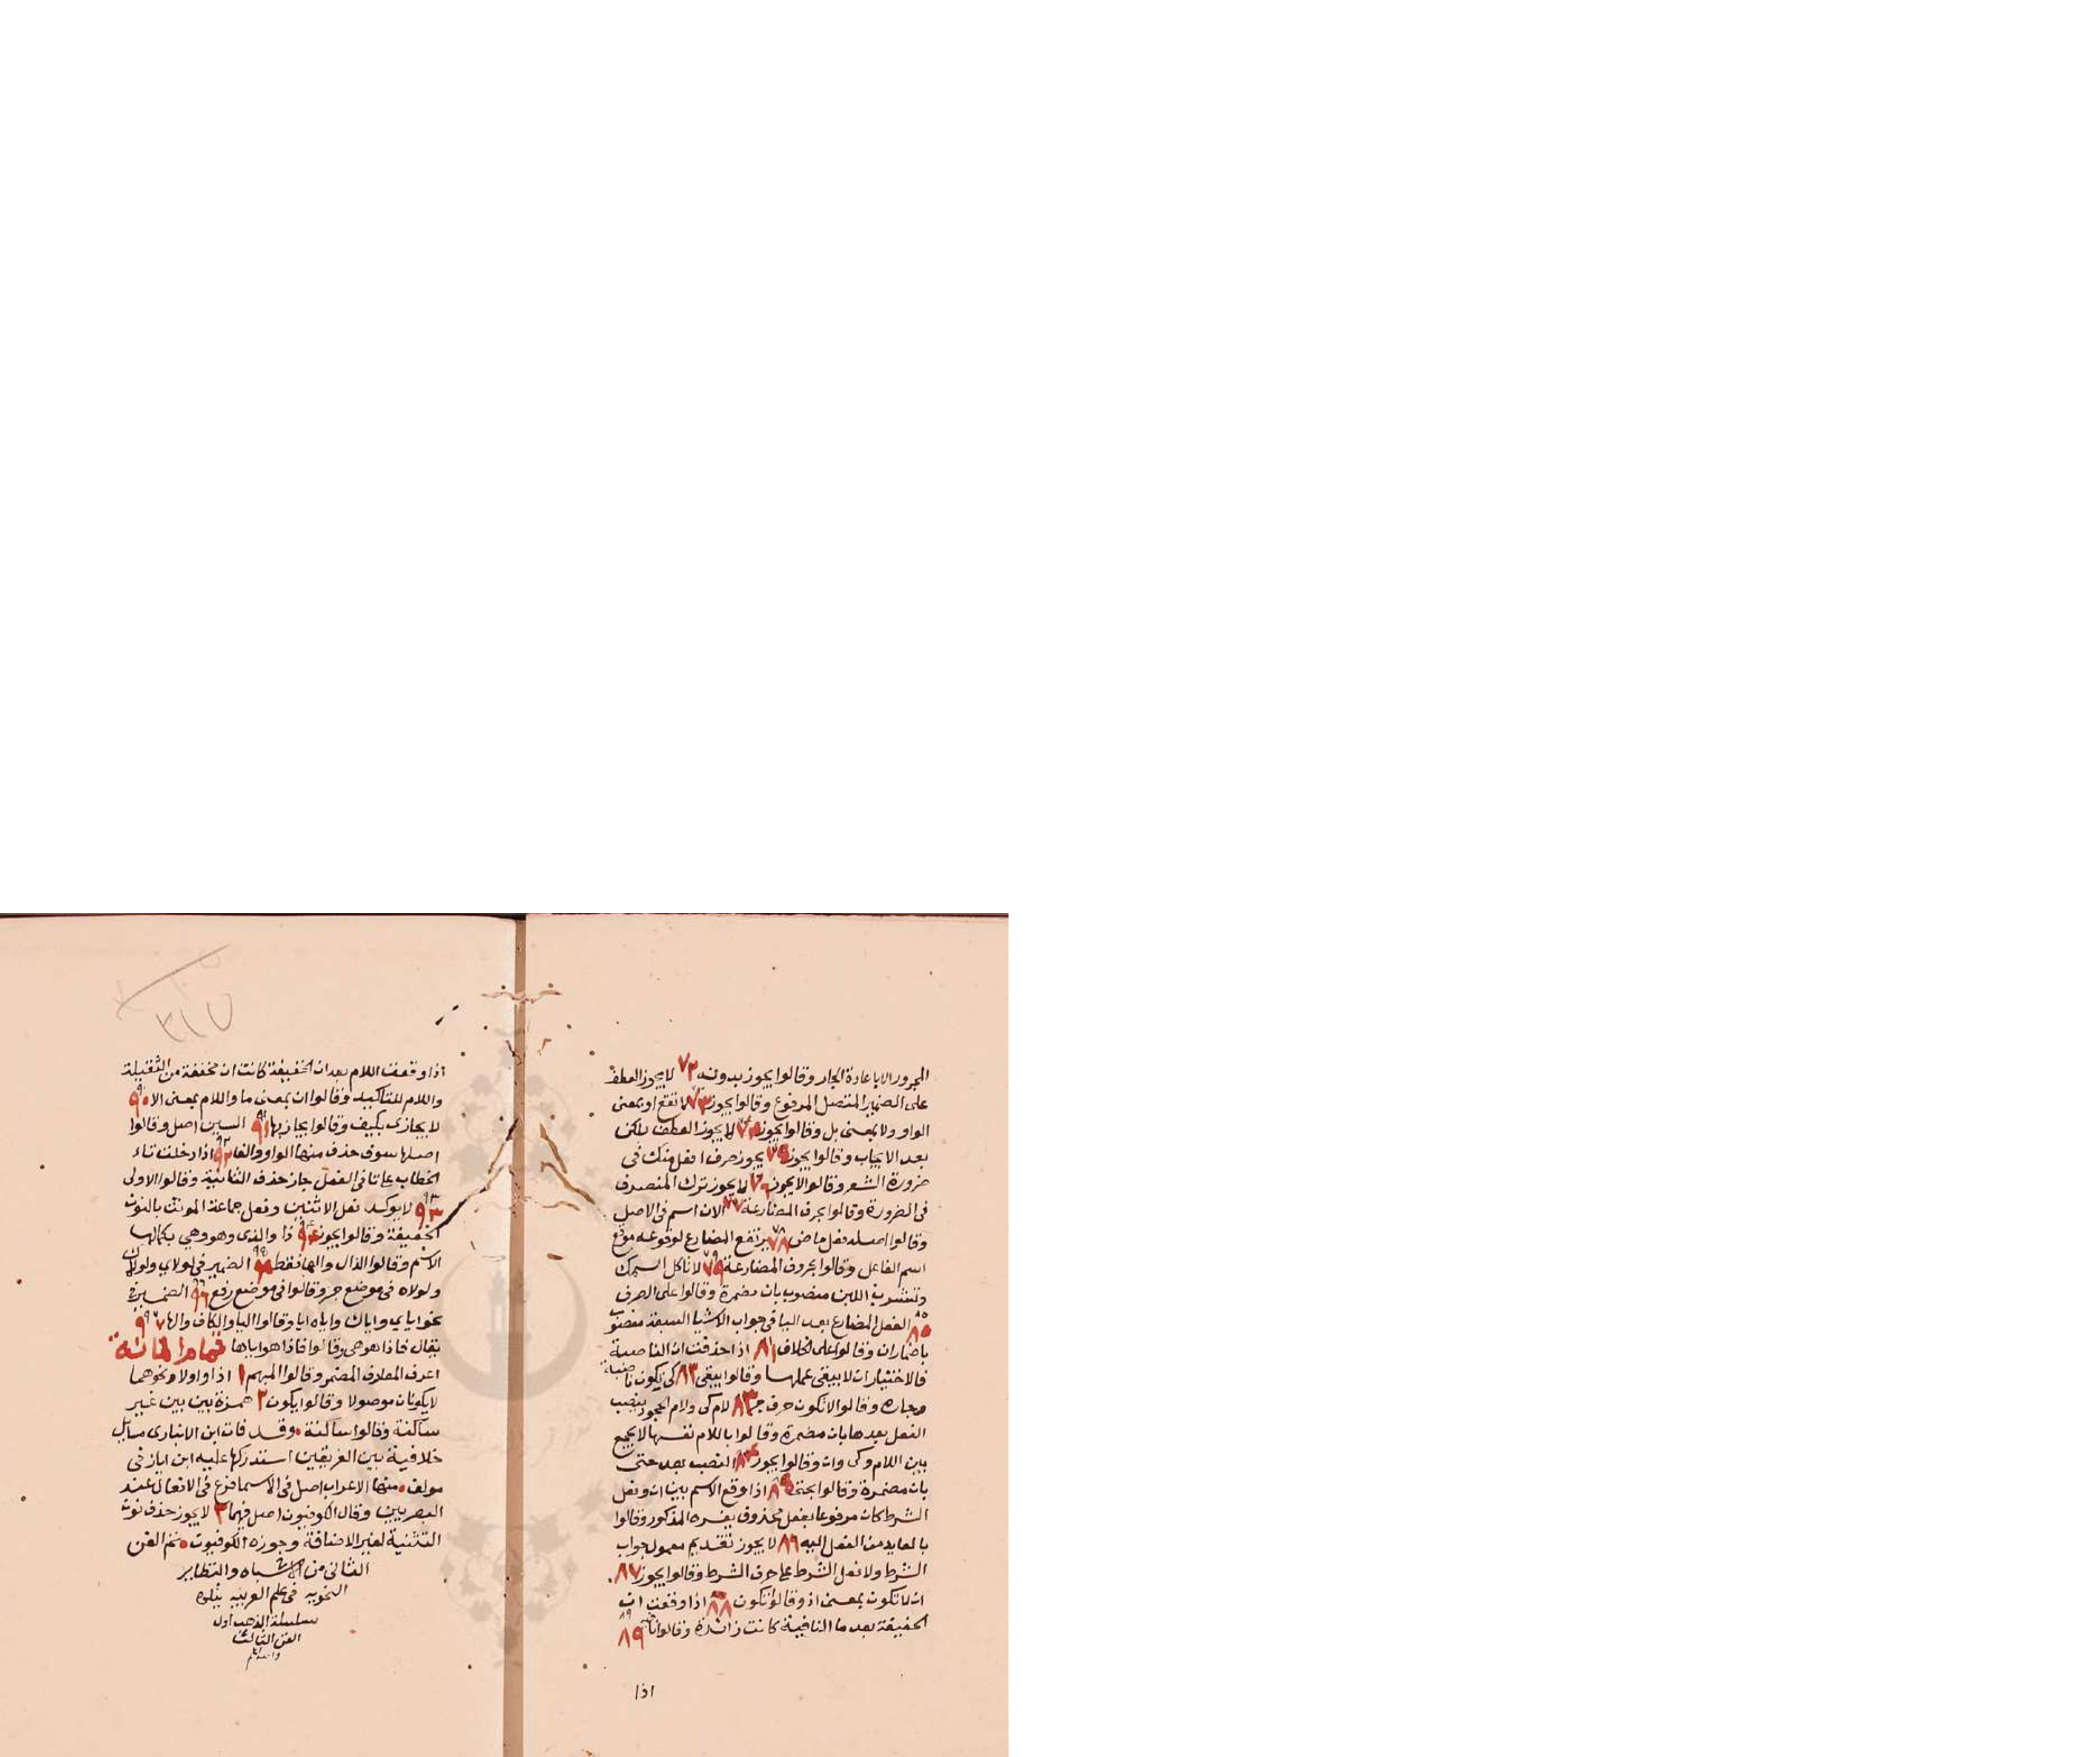 المجرور الا باعادة الجار وقالوا يجوز بدونه ٧٢ لا يجوز العطف
على الضمير المتصل المرفوع وقالوا يجوز ٧٣ لا تقع او بمعنى
الواو ولا بمعنى بل وقالوا يجوز ٧٤ لا يجوز العطف بلكن
بعد الايجاب وقالوا يجوز ٧٥ يجوز صرف افعل منك فى
ضرورة الشعر وقالوا لا يجوز ٧٦ لا يجوز ترك المنصرف
فى الضرورة وقالوا يجوز ٧٧ الان اسم فى الاصل
وقالوا اصله فعل ماض ٧٨ يرتفع المضارع لوقوعه موقع
اسم الفاعل وقالوا بحروف المضارعة ٧٩ لا تاكل السمك
وتشرب اللبن منصوب بان مضمرة وقالوا على الصرف
٨٠ الفعل المضارع بعد الفا فى جواب الاشيا السبعة منصوب
باضمار ان وقالوا على الخلاف ٨١ اذا حذفت ان الناصبة
فالاختيار ان لا يبقى عملها وقالوا يبقى ٨٢ كى تكون ناصبة
وجاره وقالوا لا تكون حرف جر ٨٣ لام كى ولام الجحود ينصب
الفعل بعدها بان مضمرة وقالوا باللام نفسها لا يجمع
بين اللام وكى وان وقالوا يجوز ٨٤ النصب بعد حتى
بان مضمرة وقالوا بحتى ٨٥ اذا وقع الاسم بين ان وفعل
الشرط كان مرفوعا بفعل محذوف يفسره المذكور وقالوا
بالعايد من الفعل اليه ٨٦ لا يجوز تقديم معمول جواب
الشرط ولا فعل الشرط على حرف الشرط وقالوا يجوز ٨٧
ان لا تكون بمعنى اذ وقالوا تكون ٨٨ اذا وقعت ان
الخفيفة بعد ما النافية كانت زائدة وقالوا نافية ٨٩
اذا
٣١٧
اذا وقعت اللام بعد ان الخفيفة كانت ان مخففة من الثقيلة
واللام للتاكيد وقالوا ان بمعنى ما واللام بمعنى الا ٩٠
لا يجازى بكيف وقالوا يجازى بها ٩١ السين اصل وقالوا
اصلها سوف حذف منها الواو والفا ٩٢ اذا دخلت تاء
الخطاب على تا فى الفعل جاز حذف الثانية وقالوا الاولى
٩٣ لا يوكد فعل الاثنين وفعل جماعة المونث بالنون
الخفيفة وقالوا يجوز ٩٤ ذا والذى وهو وهى بكمالها
الاسم وقالوا الذال والها فقط ٩٥ الضمير فى لولاى ولولاك
ولولاه فى موضع جر وقالوا فى موضع رفع ٩٦ الضمير فى
نحو اياى واياك واياه ايا وقالوا اليا والكاف والها ٩٧
يقال فاذا هو هى وقالوا فاذا هو اياها تمام المائة
اعرف المعارف المضمر وقالوا المبهم ١ اذا واولا ونحوهما
لا يكونان موصولا وقالوا يكون ٢ همزة بين بين غير
ساكنة وقالوا ساكنة وقد فات ابن الانبارى مسايل
خلافية بين الفريقين استدركها عليه ابن اياز فى
مولف منها الاعراب اصل فى الاسما فرع فى الافعال عند
البصريين وقال الكوفيون اصل فيهما ٢ لا يجوز حذف نون
التثنية لغير الاضافة وجوزه الكوفيون تم الفن
الثانى من الاشباه والنظاير
النحويه فى علم العربيه يتلوه
سلسلة الذهب اول
الفن الثالث
والله اعلم